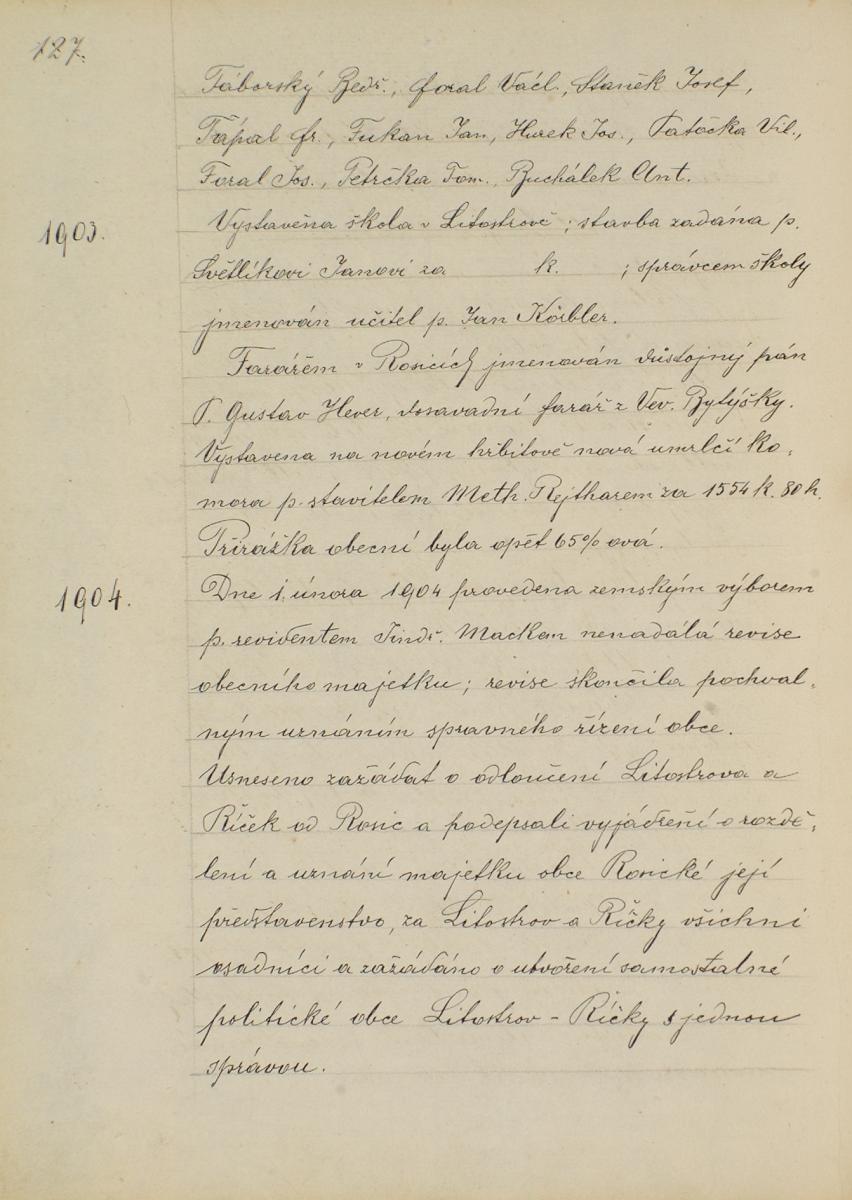 127.
Táborský Bedř., Foral Václ., Staněk Josef,
Tápal Fr., Fukan Jan, Hurek Jos., Patočka Vil.,
Foral Jos., Petrčka Tom., Buchálek Ant.
1903.
Vystavěna škola v Litostrově; stavba zadána p.
Světlíkovi Janovi za k. ; správcem školy
jmenován učitel p. Jan Körbler.
Farářem v Rosicích jmenován důstojný pán
P. Gustav Hever, dosavadní farář z Vev. Bytýšky.
Vystavena na novém hřbitově nová umrlčí ko-
mora p. stavitelem Meth. Rejtharem za 1554 k. 80 h.
Přirážka obecní byla opět 65% ová.
1904.
Dne 1. února 1904 provedena zemským výborem
p. revidentem Jindř. Mackem nenadálá revise
obecního majetku; revise skončila pochval-
ným uznáním spravného řízení obce.
Usneseno zažádat o odloučení Litostrova a
Říček od Rosic a podepsali vyjádření o rozdě-
lení a uznání majetku obce Rosické její
představenstvo, za Litostrov a Říčky všichni
osadníci a zažádáno o utvoření samostalné
politické obce Litostrov - Říčky s jednou
správou.